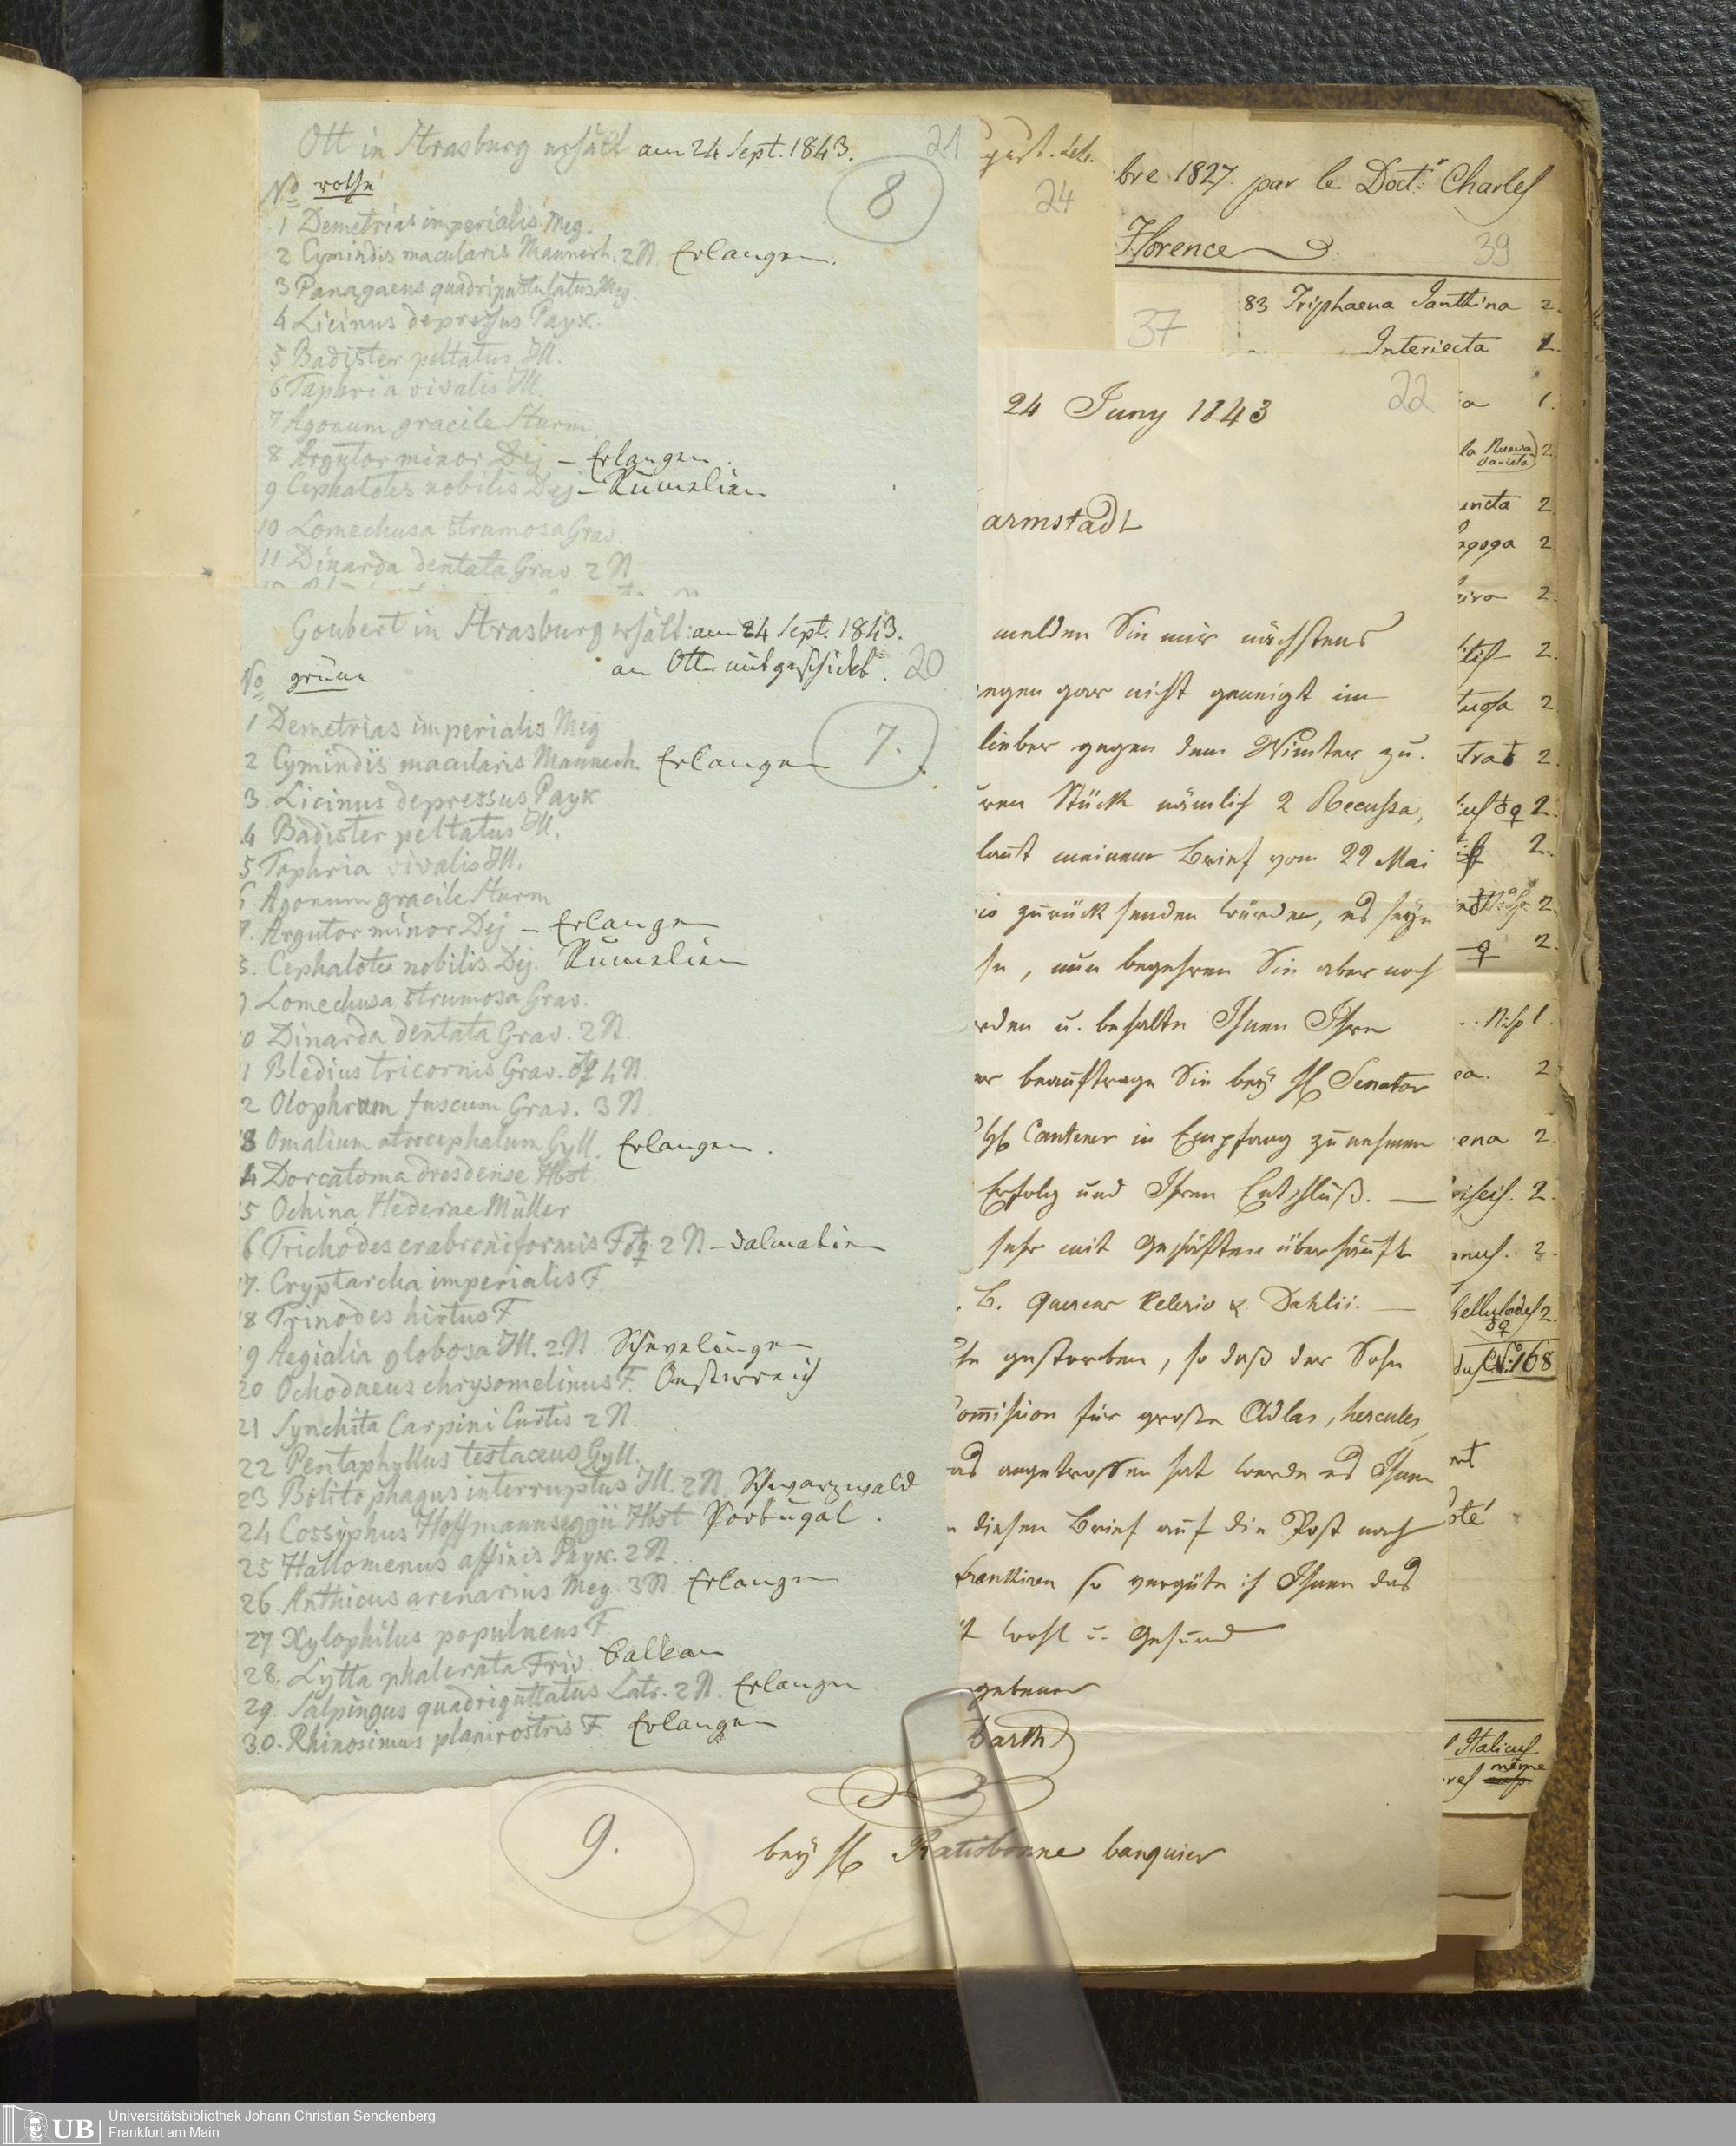 Ott in Strasburg erhält am 24 Sept. 1843. 21
8
No rothe
1 Demetrias imperialis Meg.
2 Cymindis macularis Mannerh. 2 N Erlangen.
3 Panagaeus quadripustulatus Meg.
4 Licinus depressus Payk.
5 Badister peltatus Ill.
6 Taphria vivalis Ill.
7 Agonum gracile Sturm
8 Argutor minor Dej – Erlangen.
9 Cephalotes nobilis Dej – Rumelien
10 Lomechusa strumosa Grav.
11 Dinarda dentata Grav. 2 N
Goubert in Strasburg erhält am 24 Sept. 1843.
an Otto mitgeschickt. 20
No grüne
7.
1 Demetrias imperialis Meg
2 Cymindis macularis Mannerh. Erlangen
3 Licinus depressus Payk
4 Badister peltatus Ill.
5 Taphria vivalis Ill.
6 Agonum gracile Sturm
7. Argutor minor Dej – Erlangen
8. Cephalotes nobilis Dej. Rumelien
9 Lomechusa strumosa Grav.
0 Dinarda dentata Grav. 2 N.
1 Bledius tricornis Grav. ♂♀ 4 N
2 Olophrum fuscum Grav. 3 N
3 Omalium atrocephalum Gyll. Erlangen.
4 Dorcatoma dresdense Hbst.
5. Ochina Hederae Müller
6 Trichodes crabroniformis F ♂♀ 2 N – Dalmatien
7. Cryptarcha imperialis F.
8 Trinodes hirtus F
9 Aegialia globosa Ill. 2 N. Schevelingen
20 Ochodaeus chrysomelinus F. Oesterreich
21 Synchita Carpini Curtis 2 N.
22 Pentaphyllus testaceus Gyll.
23 Bolitophagus interruptus Ill. 2 N. Schwarzwald
24 Cossyphus Hoffmannseggii Hbst Portugal.
25 Hallomenus affinis Payk. 2 N.
26 Anthicus arenarius Meg. 3 N Erlangen
27 Xylophilus populneus F
28. Lytta phalerata Friv. Balkan
29. Salpingus quadriguttatus Latr. 2 N. Erlangen
30. Rhinosimus planirostris F. Erlangen
24
37
22
24 Juny 1843
armstadt
melden Sie mir nächstens
egen gar nicht geneigt im
lieber gegen dem Winter zu.
ren Stück nämlich 2
laut meinem Brief vom 22 Mai
zurück senden würden, es seyn
se, nun begehren Sie aber noch
rden u. behalte Ihnen Ihre
er beauftrage Sie bey H Senator
H Cantener in Empfang zu nehmen
Erfolg und Ihren Entschluß. —
sehr mit Geschäften überhäuft
. B. Quercus Celerio & Dahlii. —
gestorben, so daß der Sohn
ommision für große Adlas, hercules,
as angetroffen hat werde es Ihnen
diesen Brief auf die Post nach
frankiren so vergüte ich Ihnen das
wohl u. Gesund
gebener
Barth
bey H Ratisbonne banquier
9.
bre 1827. par le Doct.r Charles
Florence 39
83 Triphaena Janthina 2.
Interjecta 2.
a 1.
la Nuova varieta 2
uncta 2
agoga 2
2.
2.
2
2
♂♀ 2.
2.
2.
♀ 2.
1.
ea. 2.
ena 2.
2.
2.
2.
♂♀
No 168
oté
Italicus
même
UB
Universitätsbibliothek Johann Christian Senckenberg
Frankfurt am Main